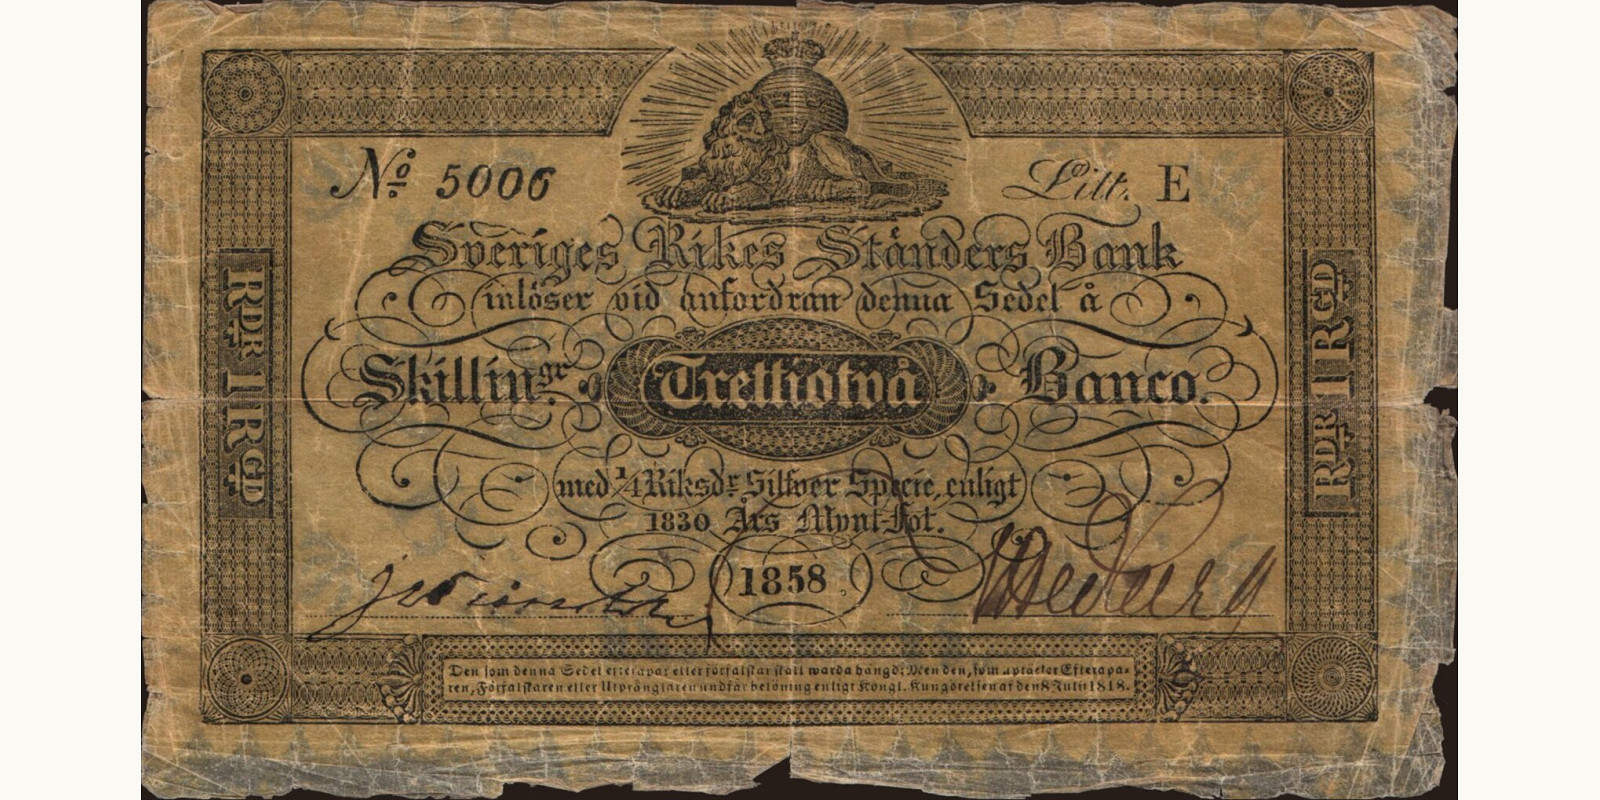 No 5006
Litt. E
Sveriges Rikes Ständers Bank
inlöser vid anfordran denna Sedel å
Skillin:gr Trettiotvå Banco.
med 1/4 Riksdr Silfver Specie, enligt
1830 Års Mynt-Fot.
1858
RDR 1 RGD
RDR 1 RGD
Den som denna Sedel efterapar eller förfalskar skall warda hängd; Men den, som uptäcker Efterapa-
ren, Förfalskaren eller Utprånglaren undfår belöning enligt Kongl. Kungörelsen af den 8 Julii 1818.